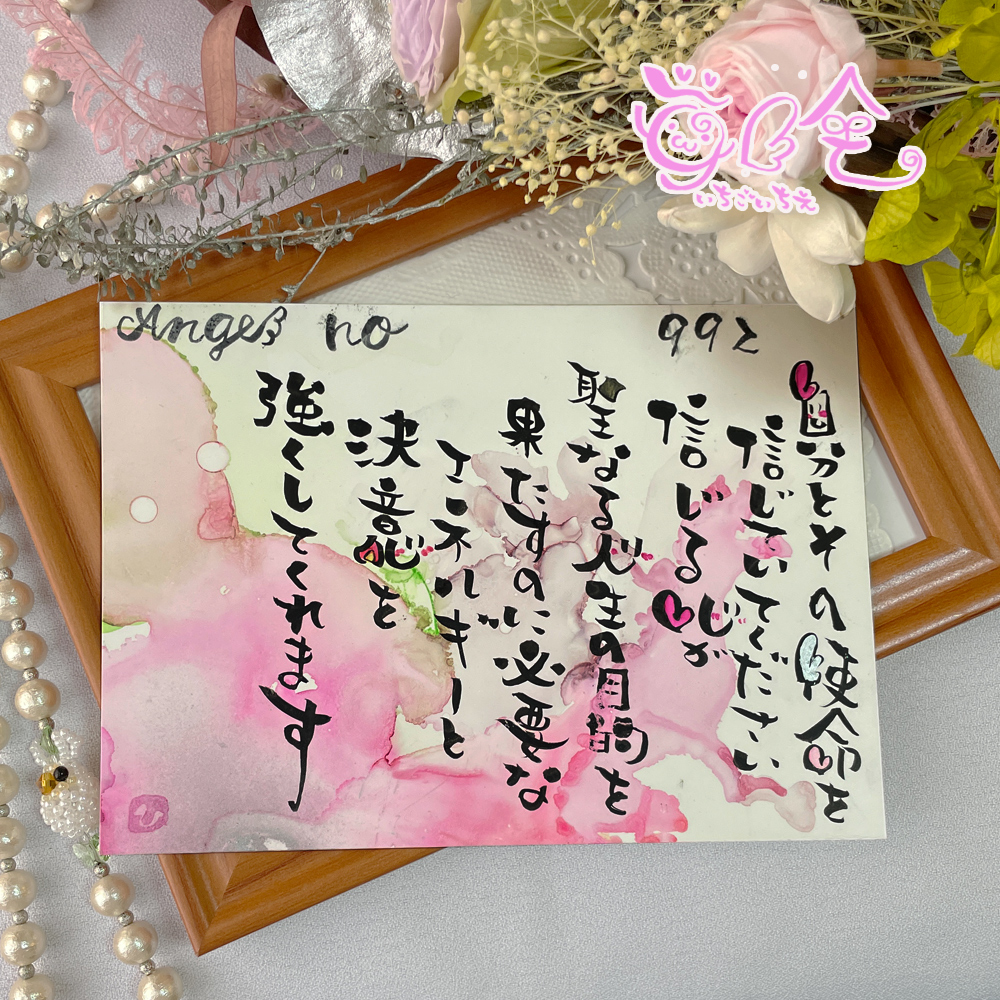 Angel no 992
自分とその使命を
信じていてください
信じる心が
聖なる人生の目的を
果たすのに必要な
エネルギーと
決意を
強くしてくれます
ひ
いちごいちえ